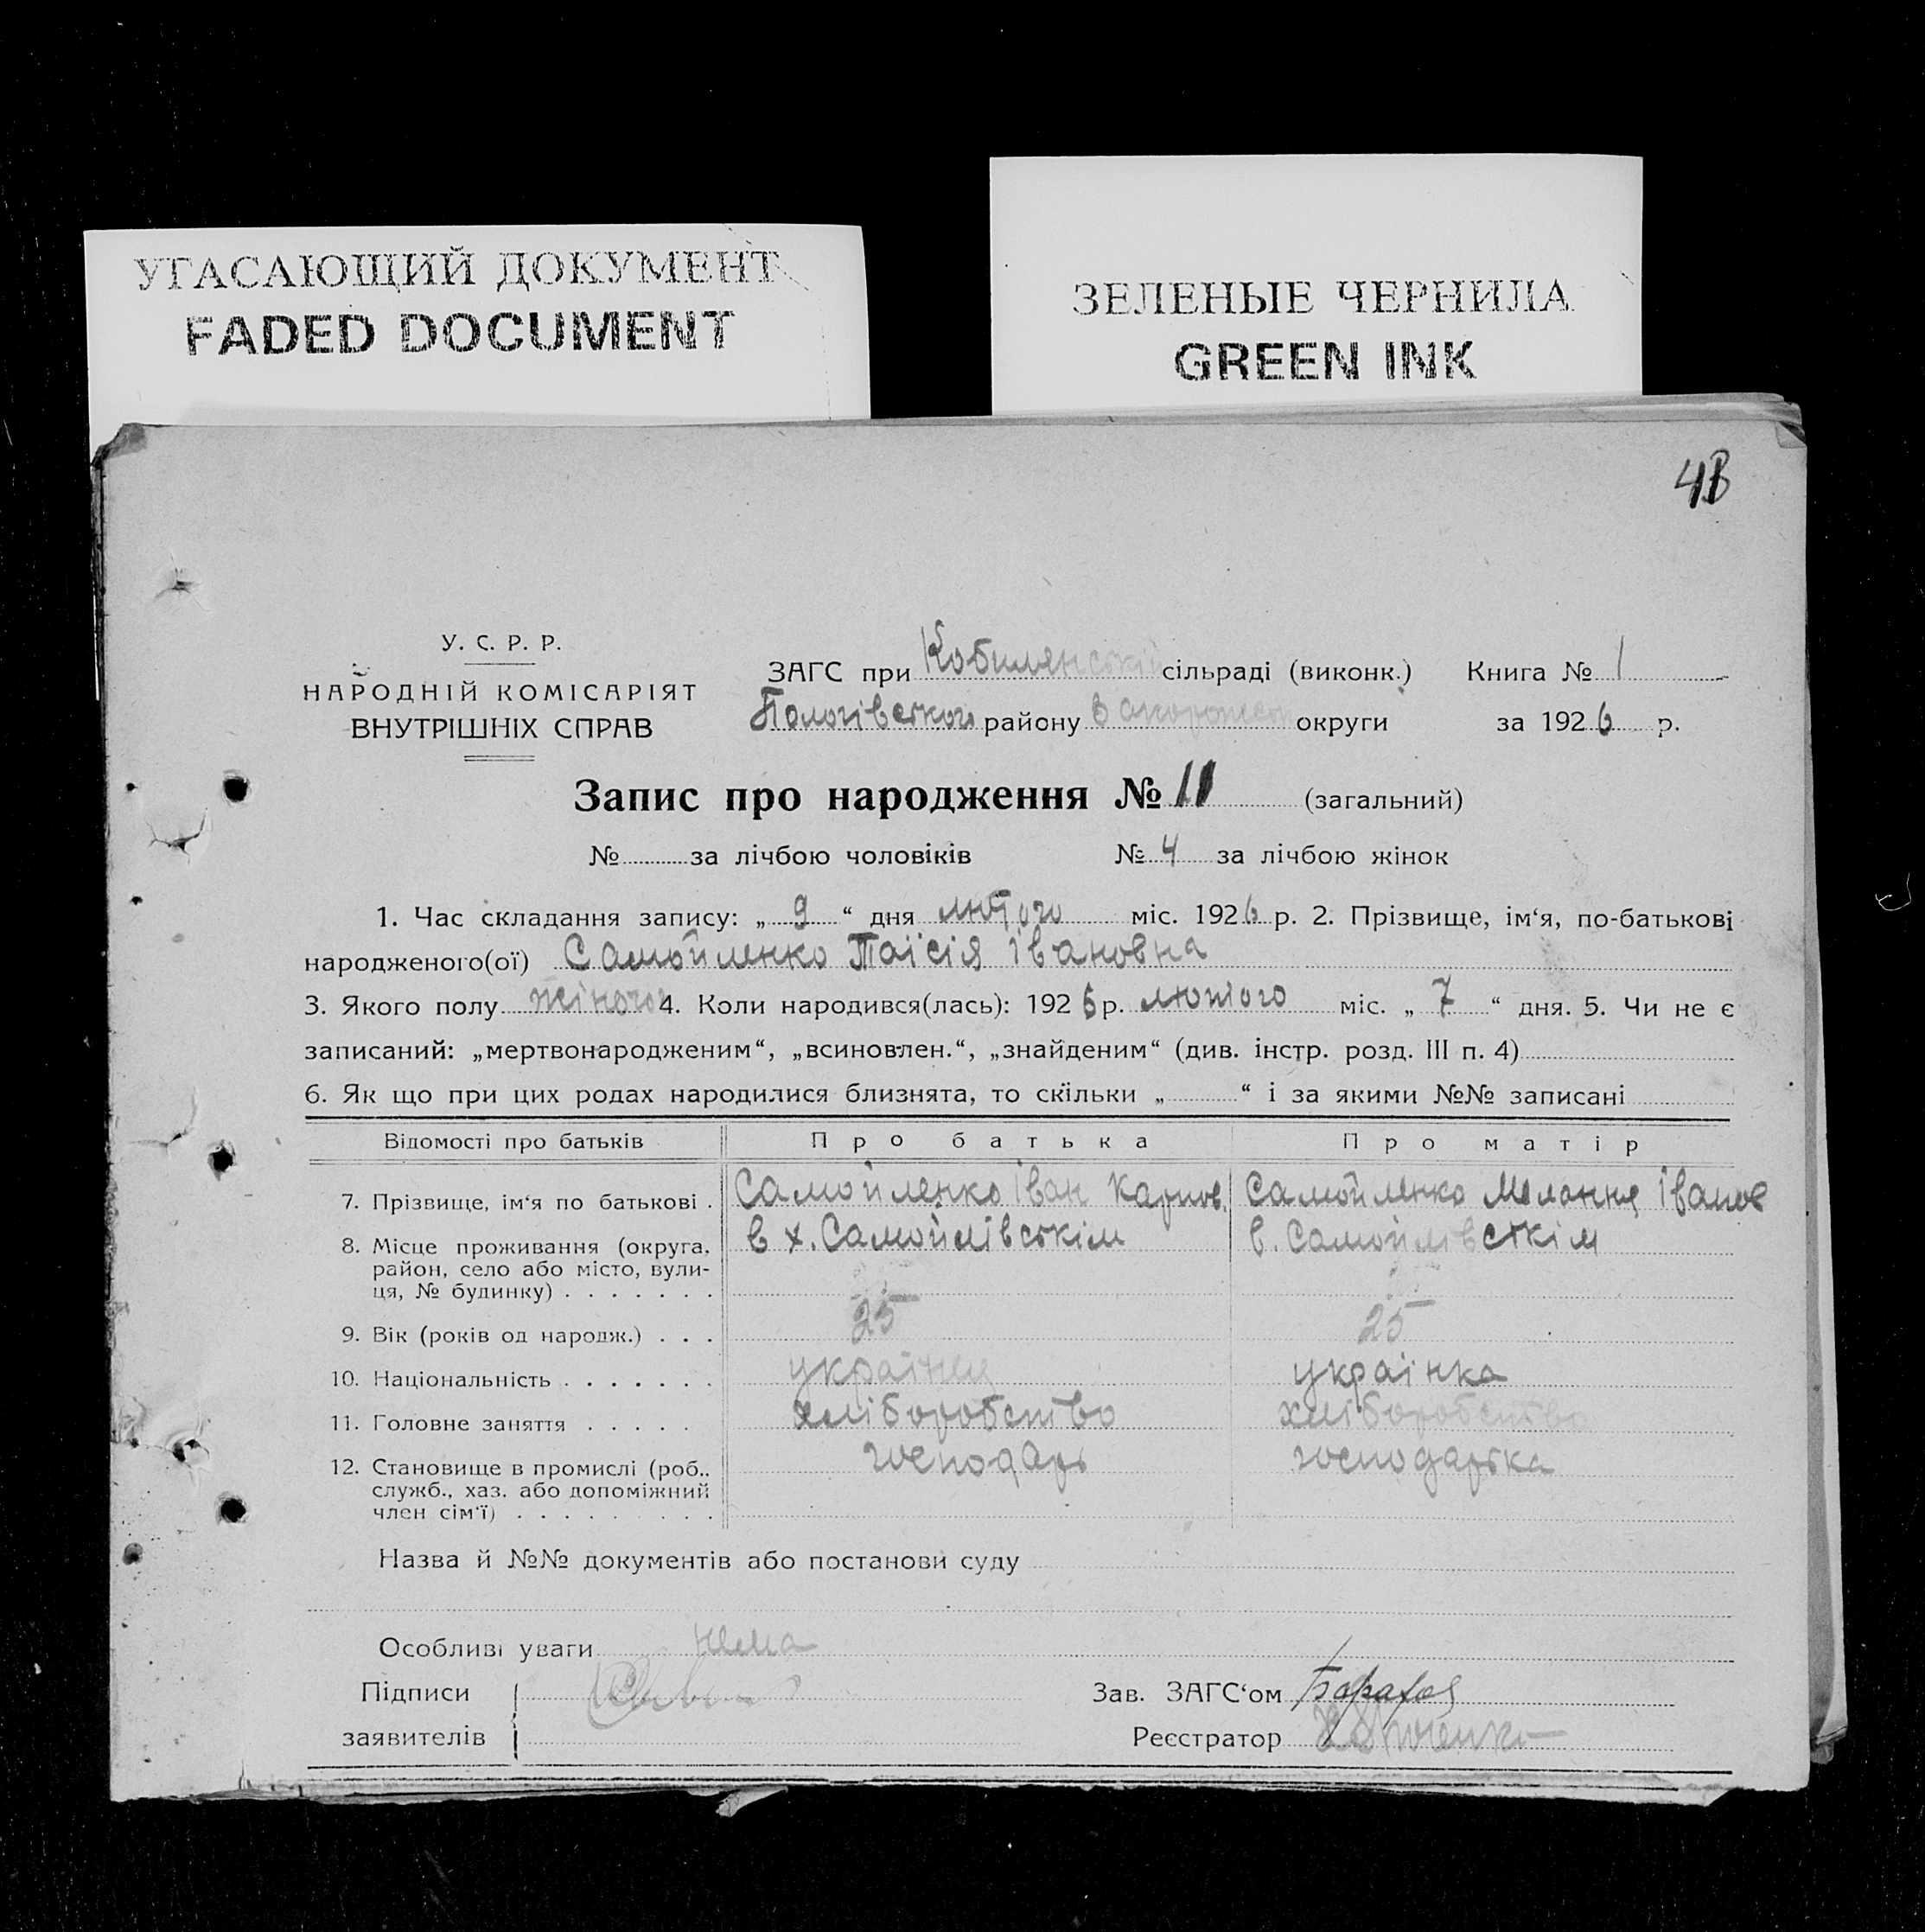 УГАСАЮЩИЙ ДОКУМЕНТ
FADED DOCUMENT
ЗЕЛЕНЫЕ ЧЕРНИЛА
GREEN INK
У. С. Р. Р.
НАРОДНІЙ КОМІСАРІЯТ
ВНУТРІШНІХ СПРАВ
ЗАГС при Кобилянській сільраді (виконк.) Книга № 1
Пологівського району Запорожської округи за 1926 р.
Запис про народження № 11 (загальний)
№ за лічбою чоловіків № 4 за лічбою жінок
1. Час складання запису: „ 9 “ дня лютого міс. 1926 р. 2. Прізвище, ім‘я, по-батькові
народженого(ої) Самойленко Таісія Івановна
3. Якого полу жіночого 4. Коли народився(лась): 1926 р. лютого міс. „ 7 “ дня. 5. Чи не є
записаний: „мертвонародженим“, „всиновлен.“, „знайденим“ (див. інстр. розд. III п. 4)
6. Як що при цих родах народилися близнята, то скільки „ “ і за якими №№ записані
Відомості про батьків Про батька Про матір
7. Прізвище, ім‘я по батькові . Самойленко Іван Карпов. Самойленко Мелання Іванов
8. Місце проживання (округа, в х. Самойлівськім в. Самойлівськім
район, село або місто, вули-
ця, № будинку) . . . . . . .
9. Вік (років од народж.) . . . 25 25
10. Національність . . . . . . . українец українка
11. Головне заняття . . . . . хліборобство хліборобство
12. Становище в промислі (роб., господарь господарька
служб., хаз. або допоміжний
член сім‘ї) . . . . . . . . .
Назва й №№ документів або постанови суду
Особливі уваги нема
Підписи
заявителів
Зав. ЗАГС‘ом
Реєстратор